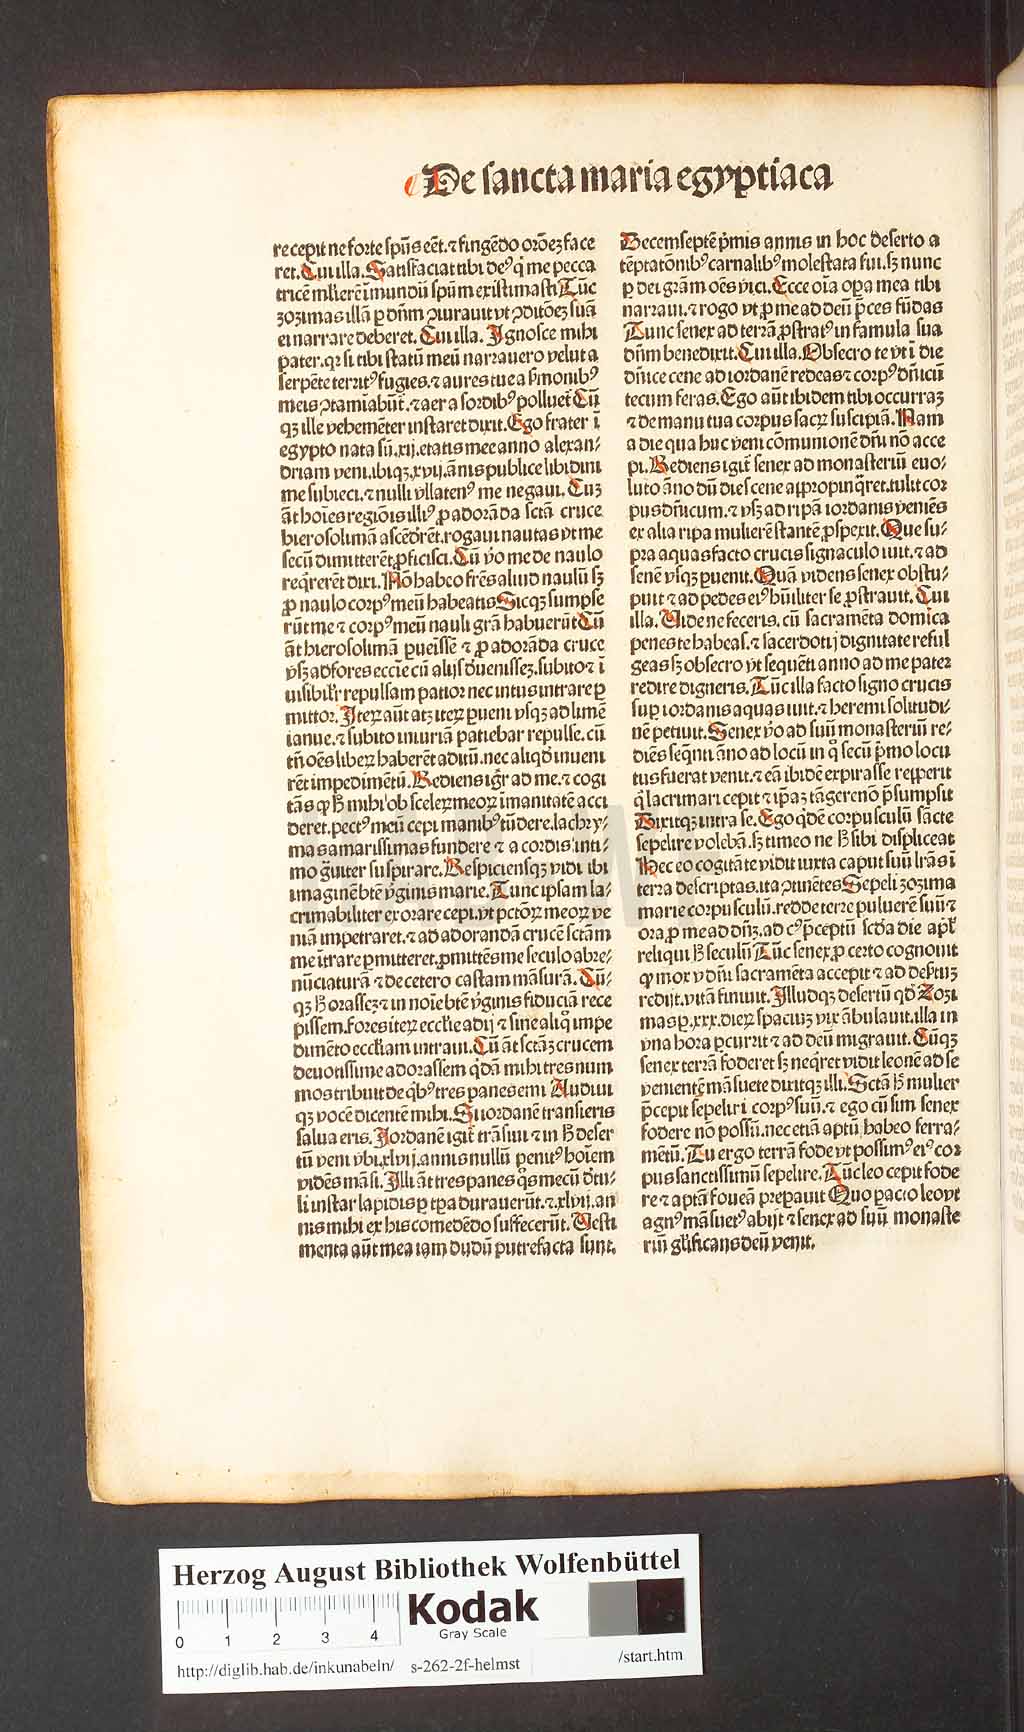 De sancta maria egyptiaca
recepit ne forte spūs eēt. ⁊ fingēdo orōeꝫ face
ret. Cui illa. Satisfaciat tibi deꝰ q̇ me pecca
tricē mlierē īmundū spūm existimasti Tūc
zozimas illā ꝑ dn̄m ꝯiurauit vt ꝯditōeꝫ suā
ei narrare deberet. Cui illa. Ignosce mihi
pater. qꝛ si tibi statū meū narrauero velut a
serpēte territꝰ fugies. ⁊ aures tue a s̄monibꝰ
meis ꝯtamīabūt̄. ⁊ aer a sordibꝰ polluet̄ Cū
qꝫ ille vehemēter instaret dixit. Ego frater ī
egypto nata sū. xij. etatis mee anno alexan-
driam veni. ibiqꝫ. xvij. ānis publice libidini
me subieci. ⁊ nulli vllatenꝰ me negaui. Cuꝫ
āt hoīes regiōis illiꝰ ꝓ adorāda sctā cruce
hierosolimā ascēdr̄et. rogaui nautas vt me
secū dimitterēt ꝓficisci. Cū v̊o me de naulo
req̇rerēt dixi. Nō habeo frēs aliud naulū sꝫ
ꝓ naulo corpꝰ meū habeatis Sicqꝫ sumpse
rūt me ⁊ corpꝰ meū nauli grā habuerūt Cū
āt hierosolimā ꝑueissē ⁊ ꝓ adorāda cruce
vsꝫ ad fores eccīe cū alijs d̓uenisseꝫ. subito ⁊ ī
uisibilr̄ repulsam patior nec intus intrare ꝑ
mittor. Iteꝝ aūt atꝫ iteꝝ ꝑueni vsqꝫ ad limē
ianue. ⁊ subito iniuriā patiebar repulse. cū
tn̄ oēs libeꝝ haberēt aditū. nec aliqd̓ inueni
rēt impedimētū. Rediens igr̄ ad me. ⁊ cogi
tās ꝙ h̄ mihi ob sceleꝝ meoꝝ īmanitatē acci
deret. pectꝰ meū cepi manibꝰ tūdere. lachry-
mas amarissimas fundere ⁊ a cordis inti-
mo g̊uiter suspirare. Respiciensqꝫ vidi ibi
imaginē btē v̓ginis marie. Tunc ipsam la-
crimabiliter exorare cepi. vt pctōꝝ meoꝝ ve
niā impetraret. ⁊ ad adorandā crucē sctām
me ītrare ꝑmitteret. ꝓmittēs me seculo abre-
nūciaturā ⁊ de cetero castam māsurā. Cū-
qꝫ h̄ orasseꝫ ⁊ in noīe btē v̓ginis fiduciā rece
pissem. fores iteꝝ ecclie adij ⁊ sine aliq̊ impe
dimēto eccliam intraui. Cū āt sctāꝫ crucem
deuotissime adorassem q̇dā mihi tres num
mos tribuit de qbꝰ tres panes emi Audiui
qꝫ vocē dicentē mihi. Si iordanē transieris
salua eris. Iordanē igit̄ trāsiui ⁊ in h̄ deser
tū veni vbi. xlvij. annis nullū penitꝰ hoiem
vidēs māsi. Illi āt tres panes q̊s mecū d̓tu-
li instar lapidis ꝑ tꝑa durauerūt. ⁊. xlvij. an
nis mihi ex his comedēdo suffecerūt. Vesti
menta aūt mea iam dudū putrefacta sunt.
Decemseptē p̄mis annis in hoc deserto a
tēptatōnibꝰ carnalibꝰ molestata fui. sꝫ nunc
ꝑ dei grām oēs vici. Ecce oīa oꝑa mea tibi
narraui. ⁊ rogo vt ꝓ me ad deū p̄ces fūdas
Tunc senex ad terrā ꝓstratꝰ in famula sua
dn̄m benedixit. Cui illa. Obsecro te vt ī die
dn̄ice cene ad iordanē redeas ⁊ corpꝰ dn̄icū
tecum feras. Ego aūt ibidem tibi occurraꝫ
⁊ de manu tua corpus sacꝝ suscipiā. Nam
a die qua huc veni cōmunionē dn̄i nō acce
pi. Rediens igit̄ senex ad monasteriū euo-
luto āno dū dies cene appropinq̇ret. tulit cor
pus dn̄icum. ⁊ vsꝫ ad ripā iordanis veniēs
ex alia ripa mulierē stantē ꝓspexit. Que su-
pra aquas facto crucis signaculo iuit. ⁊ ad
senē vsqꝫ ꝑuenit. Quā videns senex obstu-
puit ⁊ ad pedes eiꝰ hūiliter se ꝓstrauit. Cui
illa. Vide ne feceris. cū sacramēta domīca
penes te habeas. ⁊ sacerdotij dignitate reful
geas sꝫ obsecro vt sequēti anno ad me pater
redire digneris. Tūc illa facto signo crucis
suꝑ iordanis aquas iuit. ⁊ heremi solitudi-
nē petiuit. Senex v̊o ad suū monasteriū re-
diēs seq̄nti āno ad locū in q̊ secū p̄mo locu
tus fuerat venit. ⁊ eā ibidē expirasse repperit
q̇ lacrimari cepit ⁊ ip̄aꝫ tāgere nō p̄sumpsit
Dixitqꝫ intra se. Ego q̇dē corpusculū sācte
sepelire volebā. sꝫ timeo ne h̄ sibi displiceat
Hec eo cogitāte vidit iuxta caput suū lr̄as ī
terra descriptas. ita ꝯtinētes Sepeli zozima
marie corpusculū. redde terre puluerē suū ⁊
ora ꝓ me ad dn̄ꝫ. ad cꝰ p̄ceptū scd̓a die apl̓
reliqui h̄ seculū Tūc senex ꝓ certo cognouit
ꝙ mox vꝰ dn̄i sacramēta accepit ⁊ ad des̓tuꝫ
redijt. vitā finiuit. Illudqꝫ desertū qd̓ Zozi
mas ꝑ. xxx. dieꝝ spaciuꝫ vix ābulauit. illa in
vna hora ꝑcurrit ⁊ ad deū migrauit. Cūqꝫ
senex terrā foderet sꝫ neq̇ret vidit leonē ad se
venientē māsuete dixitqꝫ illi. Sctā h̄ mulier
p̄cepit sepeliri corpꝰ suū. ⁊ ego cū sim senex
fodere nō possū. nec etiā aptū habeo ferra-
mētū. Tu ergo terrā fode vt possimꝰ eiꝰ cor
pus sanctissimū sepelire. Tūc leo cepit fode
re ⁊ aptā foueā preparauit Quo ꝑacto leo vt
agnꝰ māsuetꝰ abijt ⁊ senex ad suū monaste
riū gl̓ificans deū venit.
Herzog August Bibliothek Wolfenbüttel
Kodak
Gray Scale
0 1 2 3 4
http://diglib.hab.de/inkunabeln/ s-262-2f-helmst /start.htm